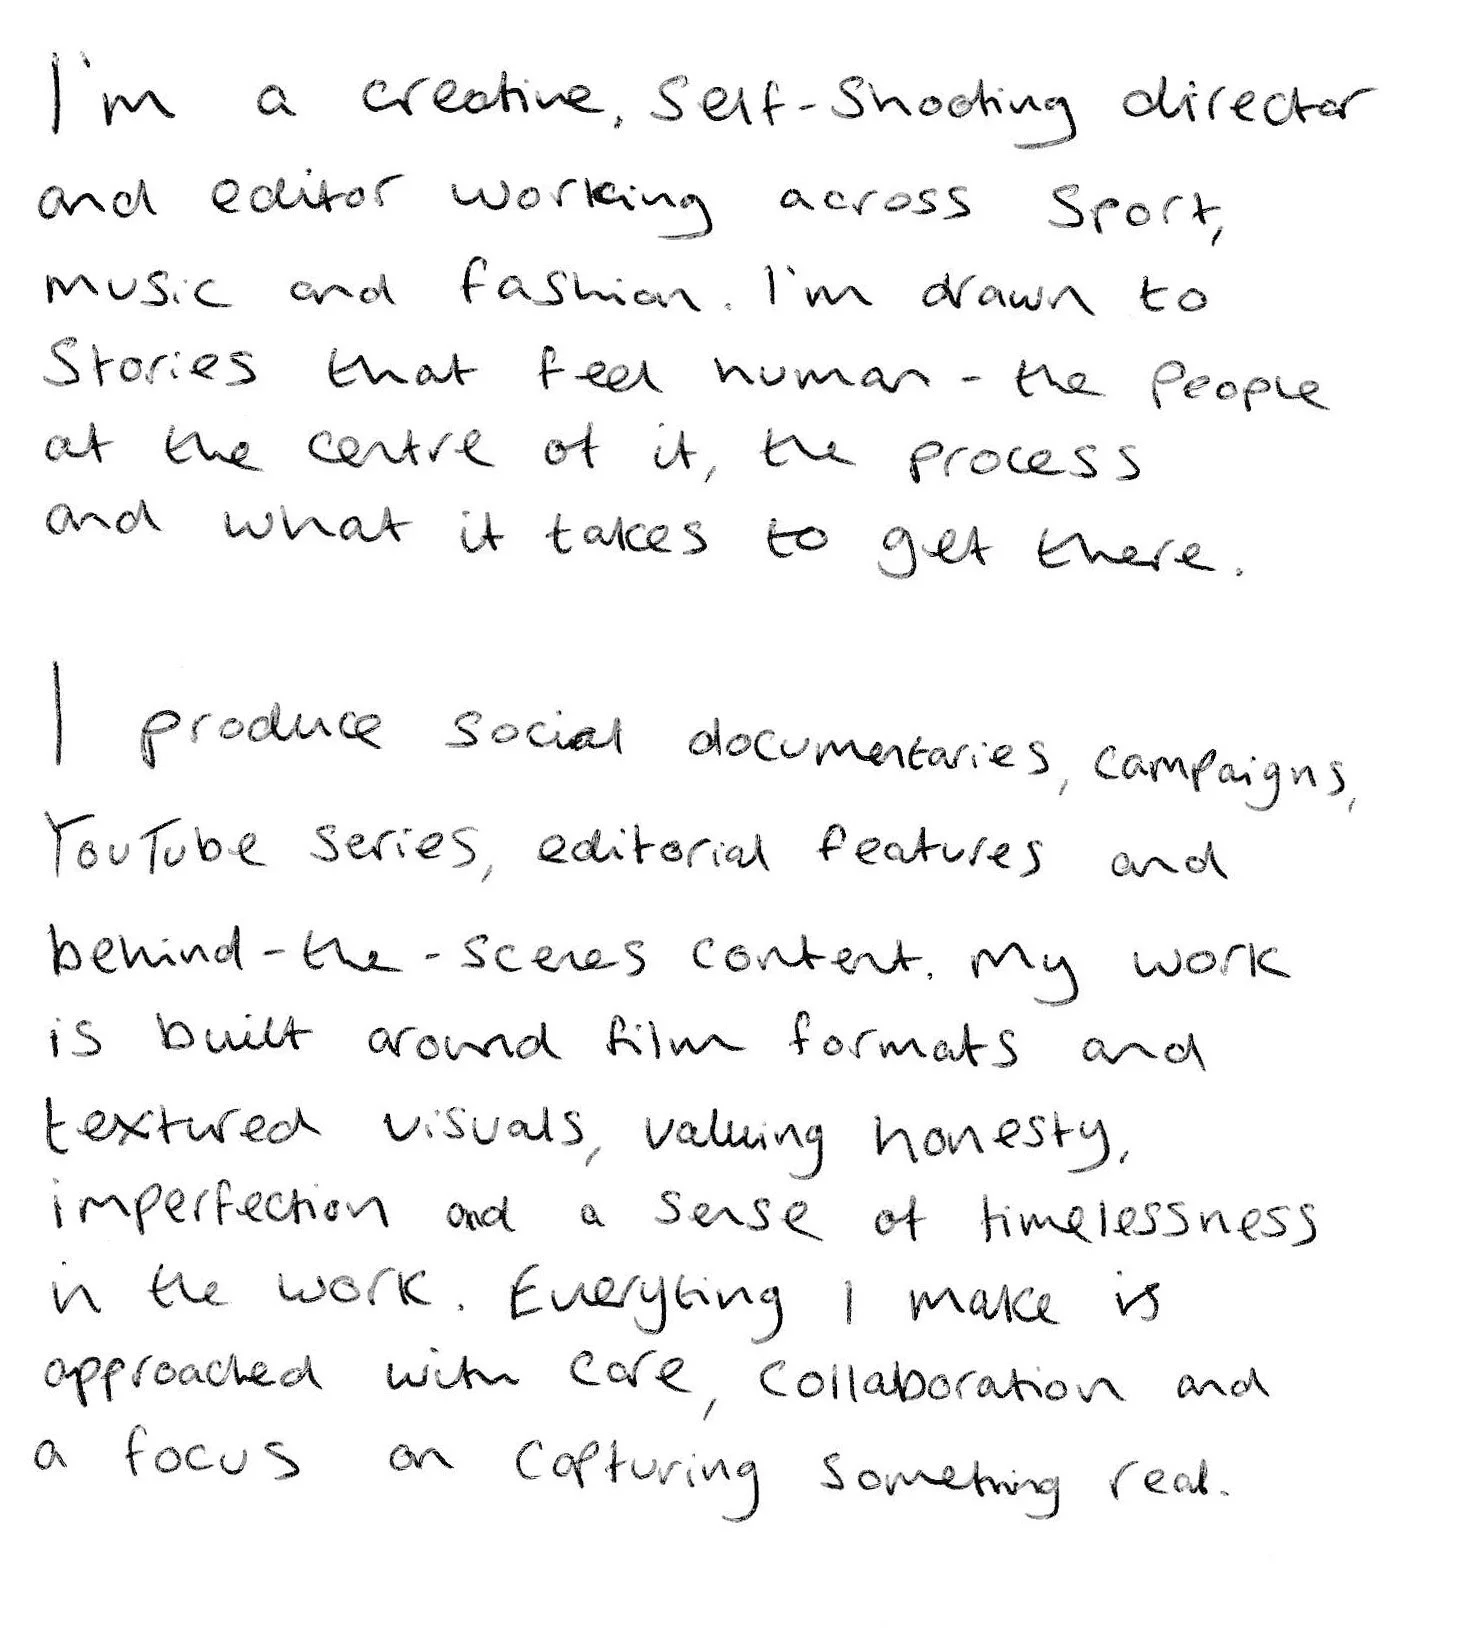 I'm a creative, self-shooting director
and editor working across sport,
music and fashion. I'm drawn to
stories that feel human - the people
at the centre of it, the process
and what it takes to get there.
I produce social documentaries, campaigns,
YouTube series, editorial features and
behind-the-scenes content. My work
is built around film formats and
textured visuals, valuing honesty,
imperfection and a sense of timelessness
in the work. Everyting I make is
approached with care, collaboration and
a focus on capturing something real.